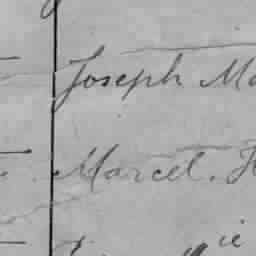 Joseph Ma
Marcel. H
ie